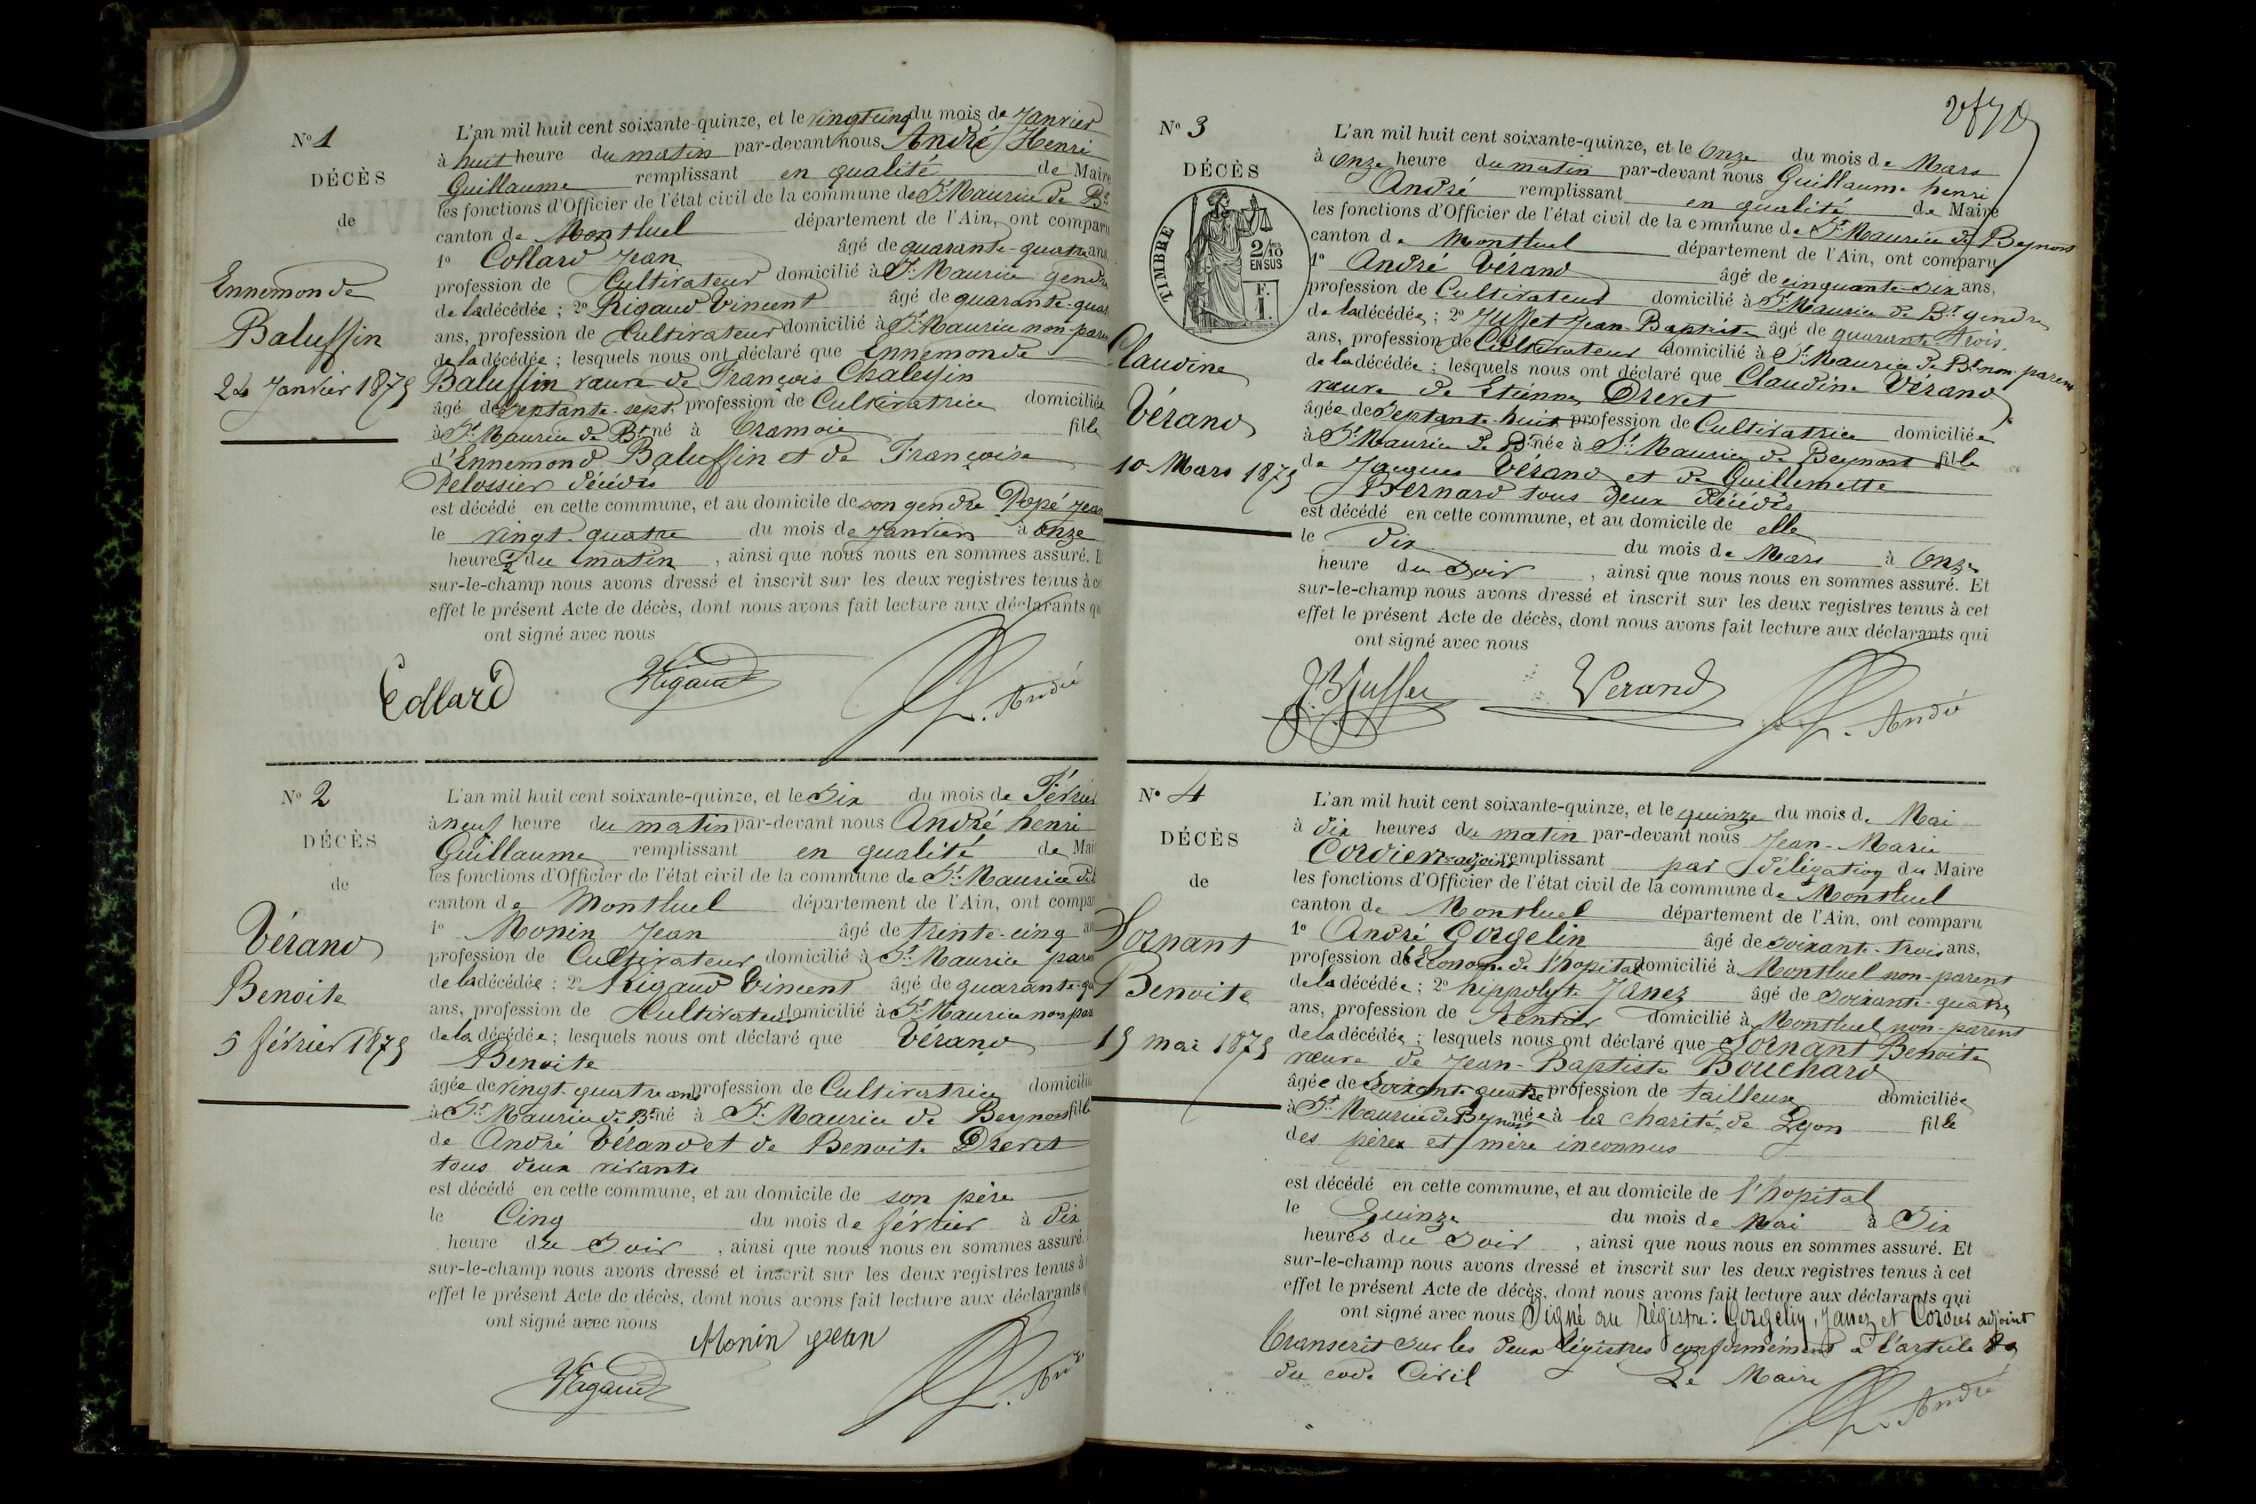 N° 1
DÉCÈS
de
Ennemonde
Baluffin
24 Janvier 1875
L'an mil huit cent soixante-quinze, et le vingt cinq du mois de Janvier
à huit heure du matin par-devant nous André Henri
Guillaume remplissant en qualité de Maire
les fonctions d'Officier de l'état civil de la commune de St Maurice de Bt
canton de Montluel département de l'Ain, ont comparu
1° Collard Jean âgé de quarante-quatre ans,
profession de Cultivateur domicilié à St Maurice gendre
de la décédée ; 2° Rigaud Vincent âgé de quarante-quat
ans, profession de Cultivateur domicilié à St Maurice non-paren
de la décédée ; lesquels nous ont déclaré que Ennemonde
Baluffin veuve de François Chalessin
âgé de septante-sept, profession de Cultivatrice domiciliée
à St Maurice de Bt né à Tramoie fille
d'Ennemond Baluffin et de Françoise
Pelossier décédés
est décédé en cette commune, et au domicile de son gendre Popé Jean
le vingt-quatre du mois de Janvier à onze
heure du matin , ainsi que nous nous en sommes assuré. E
sur-le-champ nous avons dressé et inscrit sur les deux registres tenus à ce
effet le présent Acte de décès, dont nous avons fait lecture aux déclarants qu
ont signé avec nous
Collard Rigaud André
N° 2
DÉCÈS
de
Vérand
Benoite
5 février 1875
L'an mil huit cent soixante-quinze, et le Six du mois de Février
à neuf heure du matin par-devant nous André henri
Guillaume remplissant en qualité de Mai
les fonctions d'Officier de l'état civil de la commune de St Maurice de
canton de Montluel département de l'Ain, ont compar
1° Monin Jean âgé de trente-cinq an
profession de Cultivateur domicilié à St Maurice paren
de la décédée ; 2° Rigaud Vincent âgé de quarante-qu
ans, profession de Cultivateur domicilié à St Maurice non par
de la décédée ; lesquels nous ont déclaré que Vérand
Benoite
âgée de vingt-quatre ans profession de Cultivatrice domicilié
à St Maurice de Bt né à St Maurice de Beynost fille
de André Vérand et de Benoite Drevet
tous deux vivants
est décédé en cette commune, et au domicile de son père
le Cinq du mois de février à dix
heure du Soir , ainsi que nous nous en sommes assuré.
sur-le-champ nous avons dressé et inscrit sur les deux registres tenus à
effet le présent Acte de décès, dont nous avons fait lecture aux déclarants
ont signé avec nous
Monin jean
Rigaud André
N° 3
DÉCÈS
TIMBRE
2/10
EN SUS
F.
1.
Claudine
Vérand
10 Mars 1875
L'an mil huit cent soixante-quinze, et le Onze du mois de Mars
à Onze heure du matin par-devant nous Guillaume henri
André remplissant en qualité de Maire
les fonctions d'Officier de l'état civil de la commune de St Maurice de Beynost
canton de Montluel département de l'Ain, ont comparu
1° André Vérand âgé de cinquante-six ans,
profession de Cultivateur domicilié à St Maurice de Bt gendre
de la décédée ; 2° Juffet Jean-Baptiste âgé de quarante trois
ans, profession de Cultivateur domicilié à St Maurice de Bt non-parent
de la décédée ; lesquels nous ont déclaré que Claudine Vérand
veuve de Etienne Drevet
âgée de Septante-huit profession de Cultivatrice domiciliée
à St Maurice de Bt née à St Maurice de Beynost fille
de Jacques Vérand et de Guillemette
Bernard tous deux décédés
est décédé en cette commune, et au domicile de elle
le dix du mois de Mars à Onze
heure du Soir , ainsi que nous nous en sommes assuré. Et
sur-le-champ nous avons dressé et inscrit sur les deux registres tenus à cet
effet le présent Acte de décès, dont nous avons fait lecture aux déclarants qui
ont signé avec nous
J.B Juffet Verand André
N° 4
DÉCÈS
de
Sornant
Benoite
15 mai 1875
L'an mil huit cent soixante-quinze, et le quinze du mois de Mai
à dix heures du matin par-devant nous Jean-Marie
Cordier adjoint remplissant par délégation du Maire
les fonctions d'Officier de l'état civil de la commune de Montluel
canton de Montluel département de l'Ain, ont comparu
1° André Gorgelin âgé de soixante-trois ans,
profession d'Econome de l'hopital domicilié à Montluel non-parent
de la décédée ; 2° hippolyte Janez âgé de soixante-quatre
ans, profession de Rentier domicilié à Montluel non-parent
de la décédée ; lesquels nous ont déclaré que Sornant Benoite
veuve de Jean-Baptiste Bouchard
âgée de Soixante quatre profession de tailleuse domiciliée
à St Maurice de Beynost née à la charité de Lyon fille
des père et mère inconnus
est décédé en cette commune, et au domicile de l'hopital
le Quinze du mois de Mai à Six
heures du Soir , ainsi que nous nous en sommes assuré. Et
sur-le-champ nous avons dressé et inscrit sur les deux registres tenus à cet
effet le présent Acte de décès, dont nous avons fait lecture aux déclarants qui
ont signé avec nous Signé au régistre : Gorgelin, Janez et Cordier adjoint
Transcrit sur les deux régistres conformément à l'article 80
du code Civil Le Maire
André